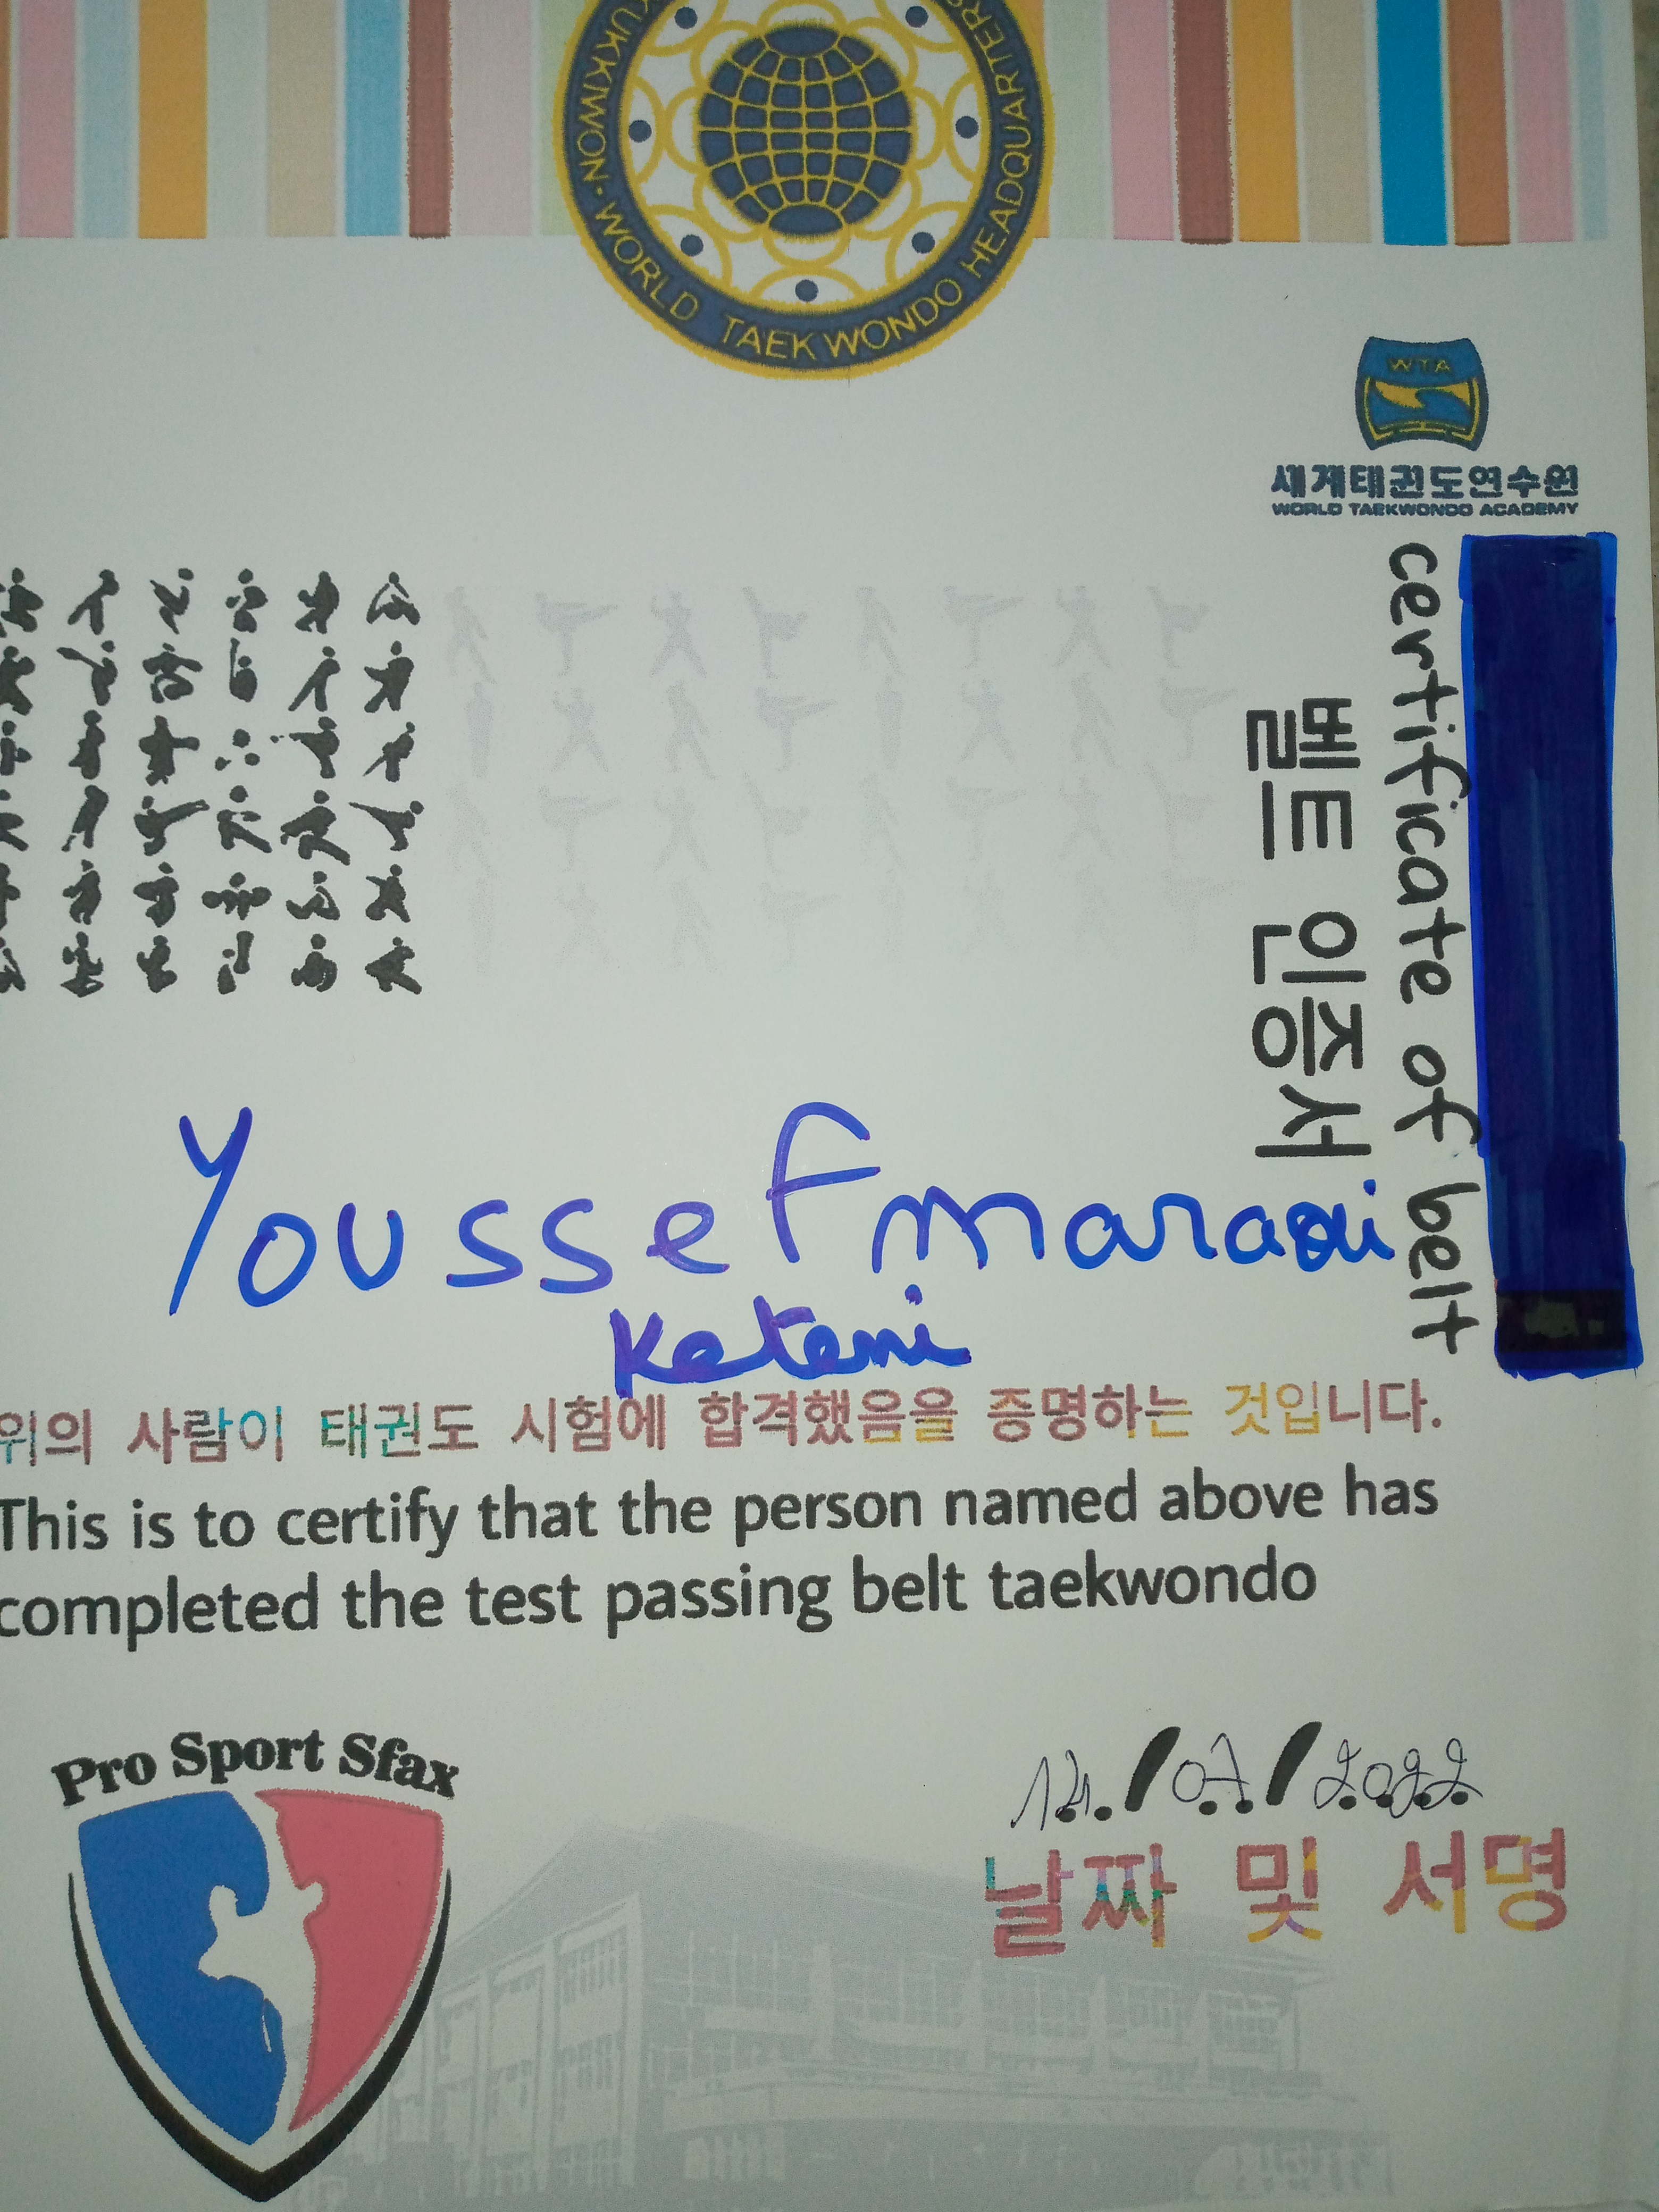 KUKKIWON · WORLD TAEKWONDO HEADQUARTERS
WTA
세계태권도연수원
WORLD TAEKWONDO ACADEMY
certificate of belt
벨트 인증서
Youssef maraoui
Ketemi
위의 사람이 태권도 시험에 합격했음을 증명하는 것입니다.
This is to certify that the person named above has
completed the test passing belt taekwondo
Pro Sport Sfax
14/07/2022
날짜 및 서명